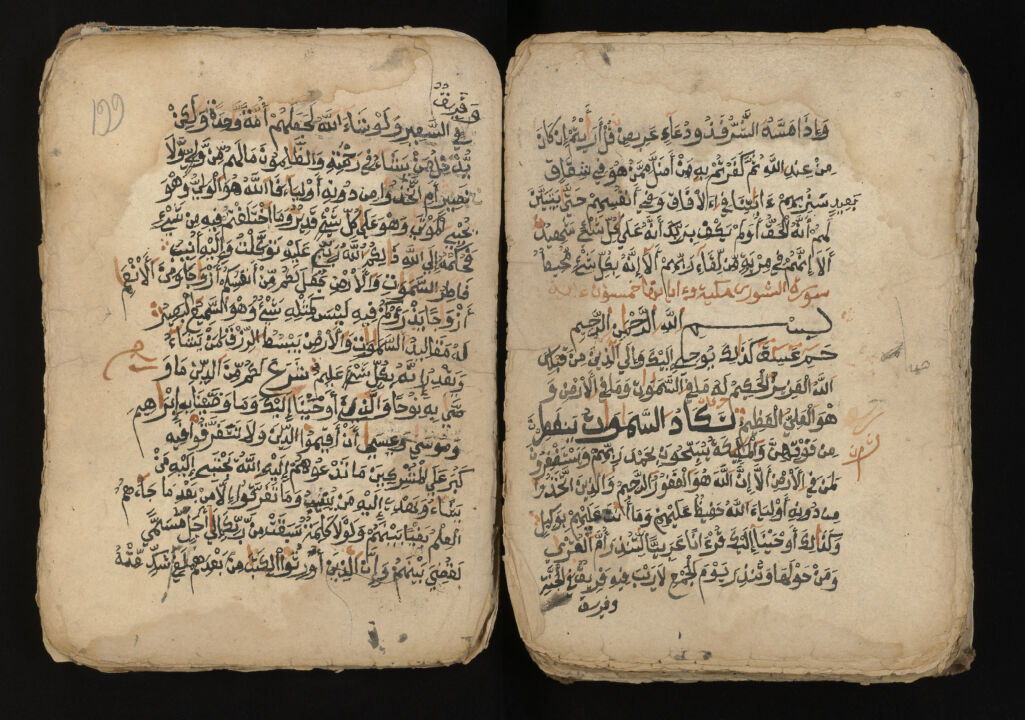 وإذا مسه الشر فذو دعاء عريض قل أريتم إن كان
من عند الله ثم كفرتم به من أضل ممن هو في شقاق
بعيد سنريهم ءايتنا في الافاق وفي أنفسهم حتى يتبين
لهم أنه الحق أولم يكف بربك أنه على كل شيء شهيد
ألا إنهم في مرية من لقاء ربهم ألا إنه بكل شيء محيط
سورة الشورى مكية وءاياتها خمسون ءاية
بسم الله الرحمن الرحيم
حم عسق كذلك يوحي إليك وإلى الذين من قبلك
الله العزيز الحكيم له ما في السموت وما في الأرض و
هو العلي العظيم تكاد السموت يتفطرن
من فوقهن والملئكة يسبحون بحمد ربهم ويستغفرون
لمن في الأرض ألا إن الله هو الغفور الرحيم والذين اتخذوا
من دونه أولياء الله حفيظ عليهم وما أنت عليهم بوكيل
وكذلك أوحينا إليك قرءانا عربيا لتنذر أم القرى
ومن حولها وتنذر يوم الجمع لا ريب فيه فريق في الجنة
وفريق
١٩٩
وفريق
في السعير ولو شاء الله لجعلهم أمة وحدة ولكن
يدخل من يشاء في رحمته والظلمون ما لهم من ولي ولا
نصير أم اتخذوا من دونه أولياء فالله هو الولي وهو
يحيي الموتى وهو على كل شيء قدير وما اختلفتم فيه من شيء
فحكمه إلى الله ذلكم الله ربي عليه توكلت وإليه أنيب
فاطر السموت والأرض جعل لكم من أنفسكم أزوجا ومن الأنعم
أزوجا يذرؤكم فيه ليس كمثله شيء وهو السميع البصير
له مقاليد السموت والأرض يبسط الرزق لمن يشاء
ويقدر إنه بكل شيء عليم شرع لكم من الدين ما و
صى به نوحا والذي أوحينا إليك وما وصينا به إبراهيم
وموسى وعيسى أن أقيموا الدين ولا تتفرقوا فيه
كبر على المشركين ما تدعوهم إليه الله يجتبي إليه من
يشاء ويهدي إليه من ينيب وما تفرقوا إلا من بعد ما جاءهم
العلم بغيا بينهم ولولا كلمة سبقت من ربك إلى أجل مسمى
لقضي بينهم وإن الذين أورثوا الكتب من بعدهم لفي شك منه